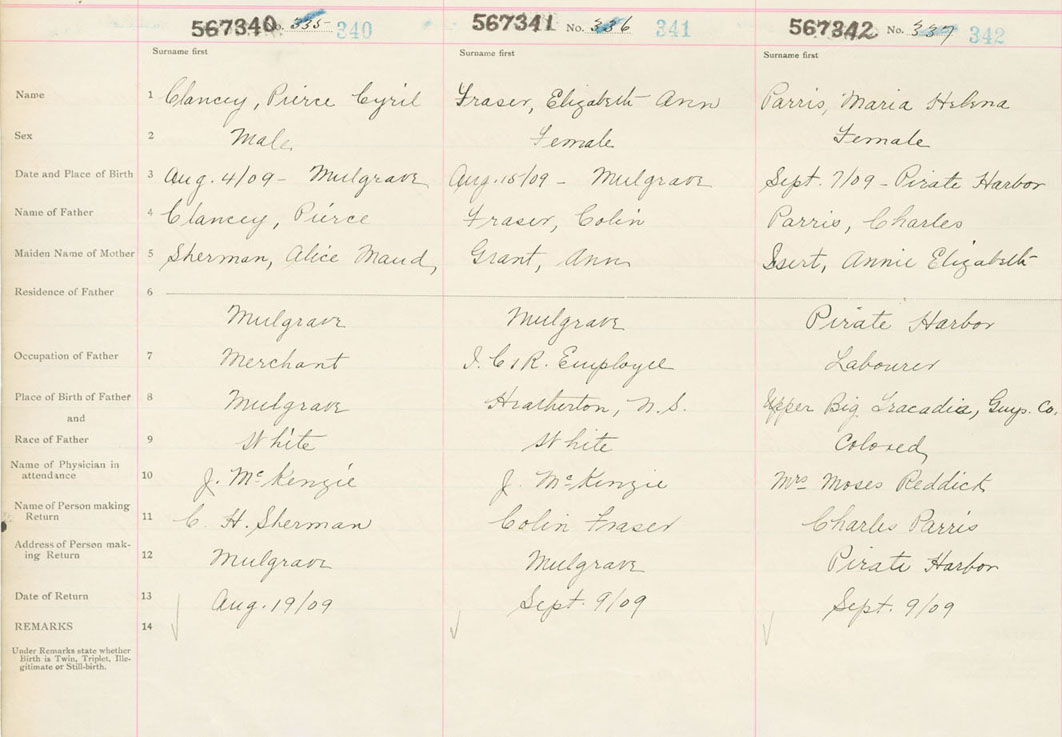 567340 No. 335 340 567341 No. 336 341 567342 No. 337 342
Surname first Surname first Surname first
Name 1 Clancey, Pierce Cyril Fraser, Elizabeth Ann Parris, Maria Helena
Sex 2 Male Female Female
Date and Place of Birth 3 Aug. 4/09 - Mulgrave Aug. 15/09 - Mulgrave Sept. 7/09 - Pirate Harbor
Name of Father 4 Clancey, Pierce Fraser, Colin Parris, Charles
Maiden Name of Mother 5 Sherman, Alice Maud, Grant, Ann Annie Elizabeth
Residence of Father 6
Mulgrave Mulgrave Pirate Harbor
Occupation of Father 7 Merchant I. C. R. Employee Labourer
Place of Birth of Father 8 Mulgrave Heatherton, N.S. Upper Big Tracadie, Guys. Co.
and
Race of Father 9 White White Colored
Name of Physician in
attendance 10 J. McKenzie J. McKenzie Mrs Moses Reddick
Name of Person making
Return 11 C. H. Sherman Colin Fraser Charles Parris
Address of Person mak-
ing Return 12 Mulgrave Mulgrave Pirate Harbor
Date of Return 13 Aug. 19/09 Sept. 9/09 Sept. 9/09
REMARKS 14
Under Remarks state whether
Birth is Twin, Triplet, Ille-
gitimate or Still-birth.